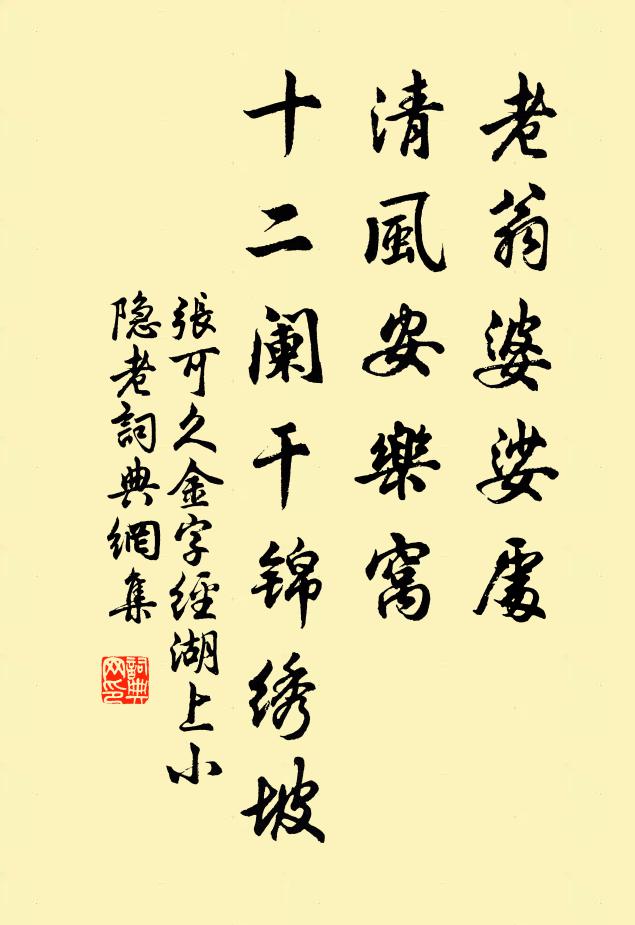 老翁婆娑處
清風安樂窩
十二阑干锦绣坡
張可久金字經湖上小
隐老詞典網集
詞典
网印